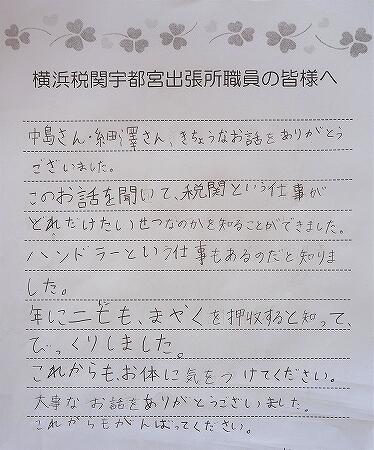 横浜税関宇都宮出張所職員の皆様へ
中島さん・細澤さん、きちょうなお話をありがとう
ございました。
このお話を聞いて、税関という仕事が
どれだけたいせつなのかを知ることができました。
ハンドラーという仕事もあるのだと知りま
した。
年に二ども、まやくを押収すると知って、
びっくりしました。
これからも、お体に気をつけてください。
大事なお話をありがとうございました。
これからもがんばってください。